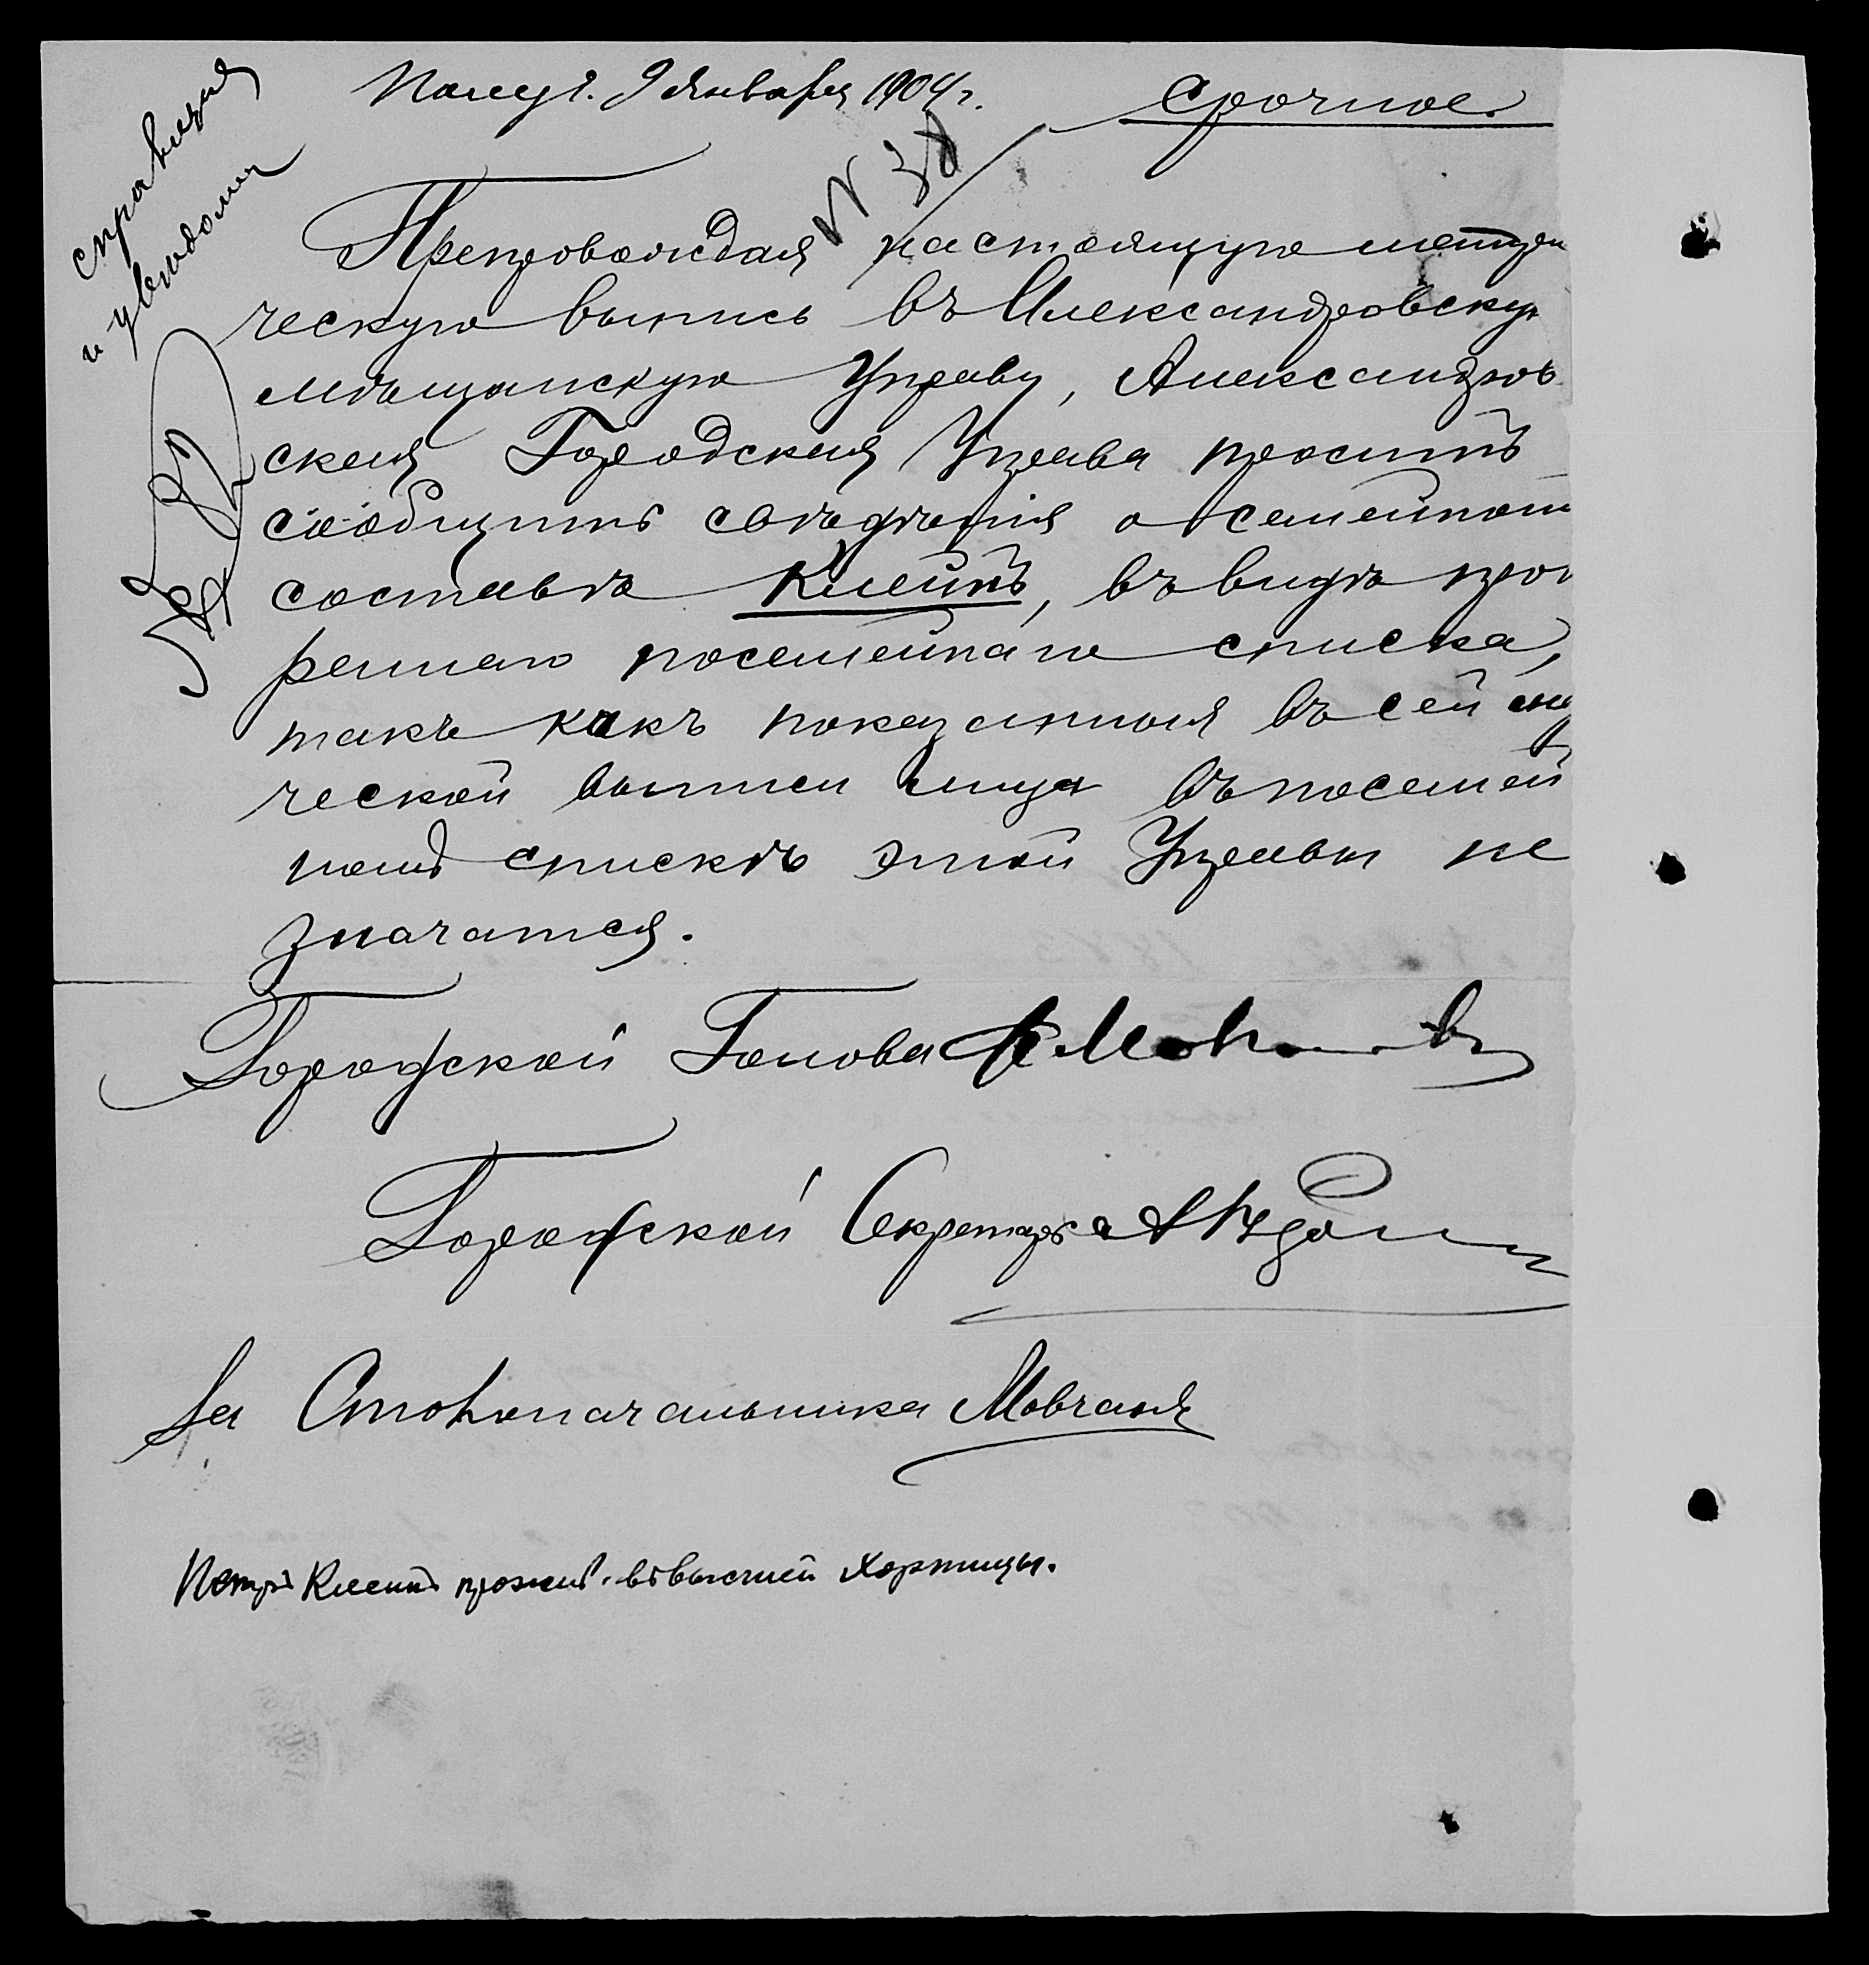 справиться
и уведомить
Получ. 9 Января 1904 г.
Срочное.
N 38
Препровождая настоящую метри
ческую выпись въ Александровскую
Мѣщанскую Управу, Александров
ская Городская Управа проситъ
сообщить свѣдѣнія о семейном
составѣ Клейнъ, въ видѣ про
реннаго посемейнаго списка,
такъ какъ показанныя въ сей
ческой выписи лица въ посемей
номъ спискѣ этой Управы не
значатся.
Городской Голова
Городской Секретарь
За Столоначальника Мовчанъ
Петръ Клейнъ прожив. въ высшей Хортицы.